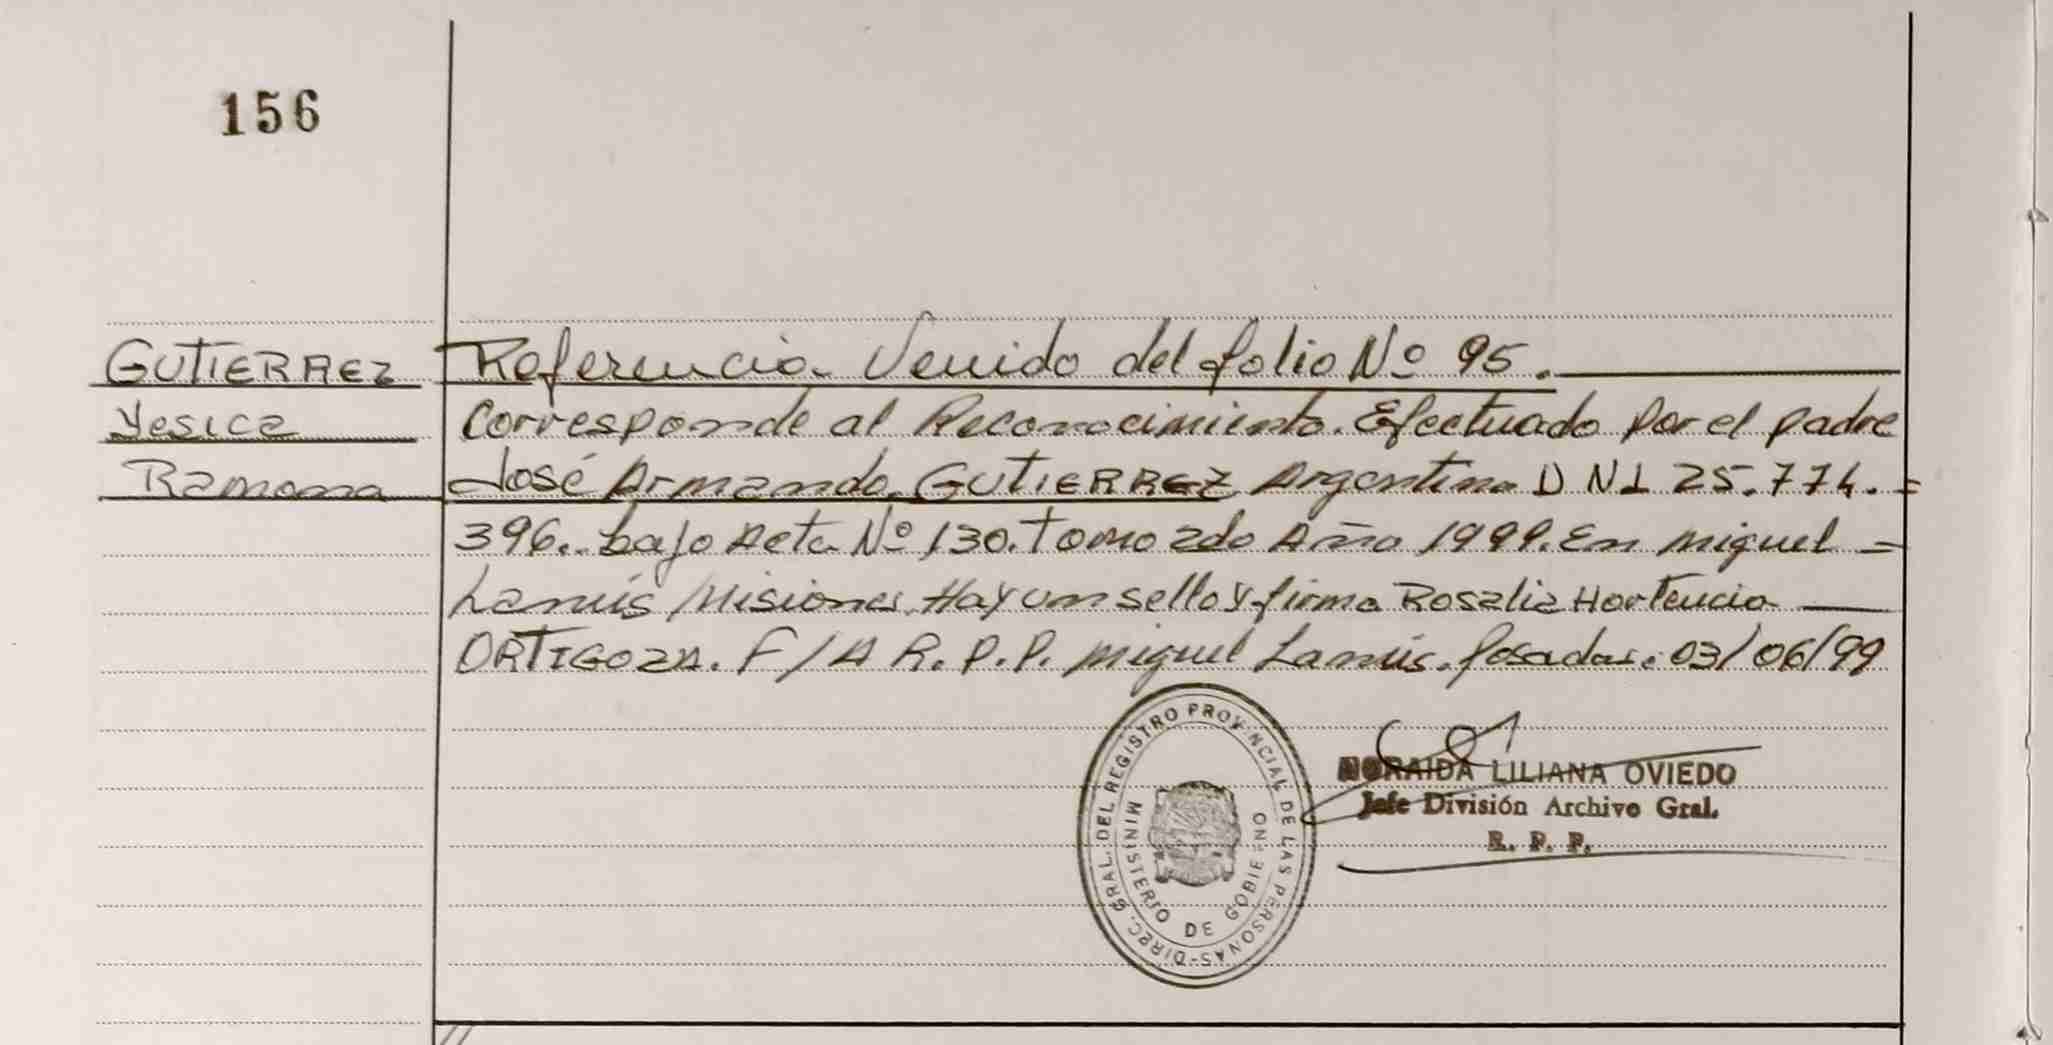 156
GUTIERREZ
Yesica
Ramona
Referencia. Venido del folio Nº 95.
Corresponde al Reconocimiento. Efectuado por el padre
José Armando. GUTIERREZ Argentino D N I 25.774.=
396.. bajo Acta Nº 130. Tomo 2do Año 1999. En Miguel =
Lanús Misiones. Hay un sello y firma Rosalia Hortencia
ORTIGOZA. F/A R.P.P. Miguel Lanús. Posadas. 03/06/99
DIREC. GRAL. DEL REGISTRO PROVINCIAL DE LAS PERSONAS-
MINISTERIO DE GOBIERNO
NORAIDA LILIANA OVIEDO
Jefe División Archivo Gral.
R. P. P.